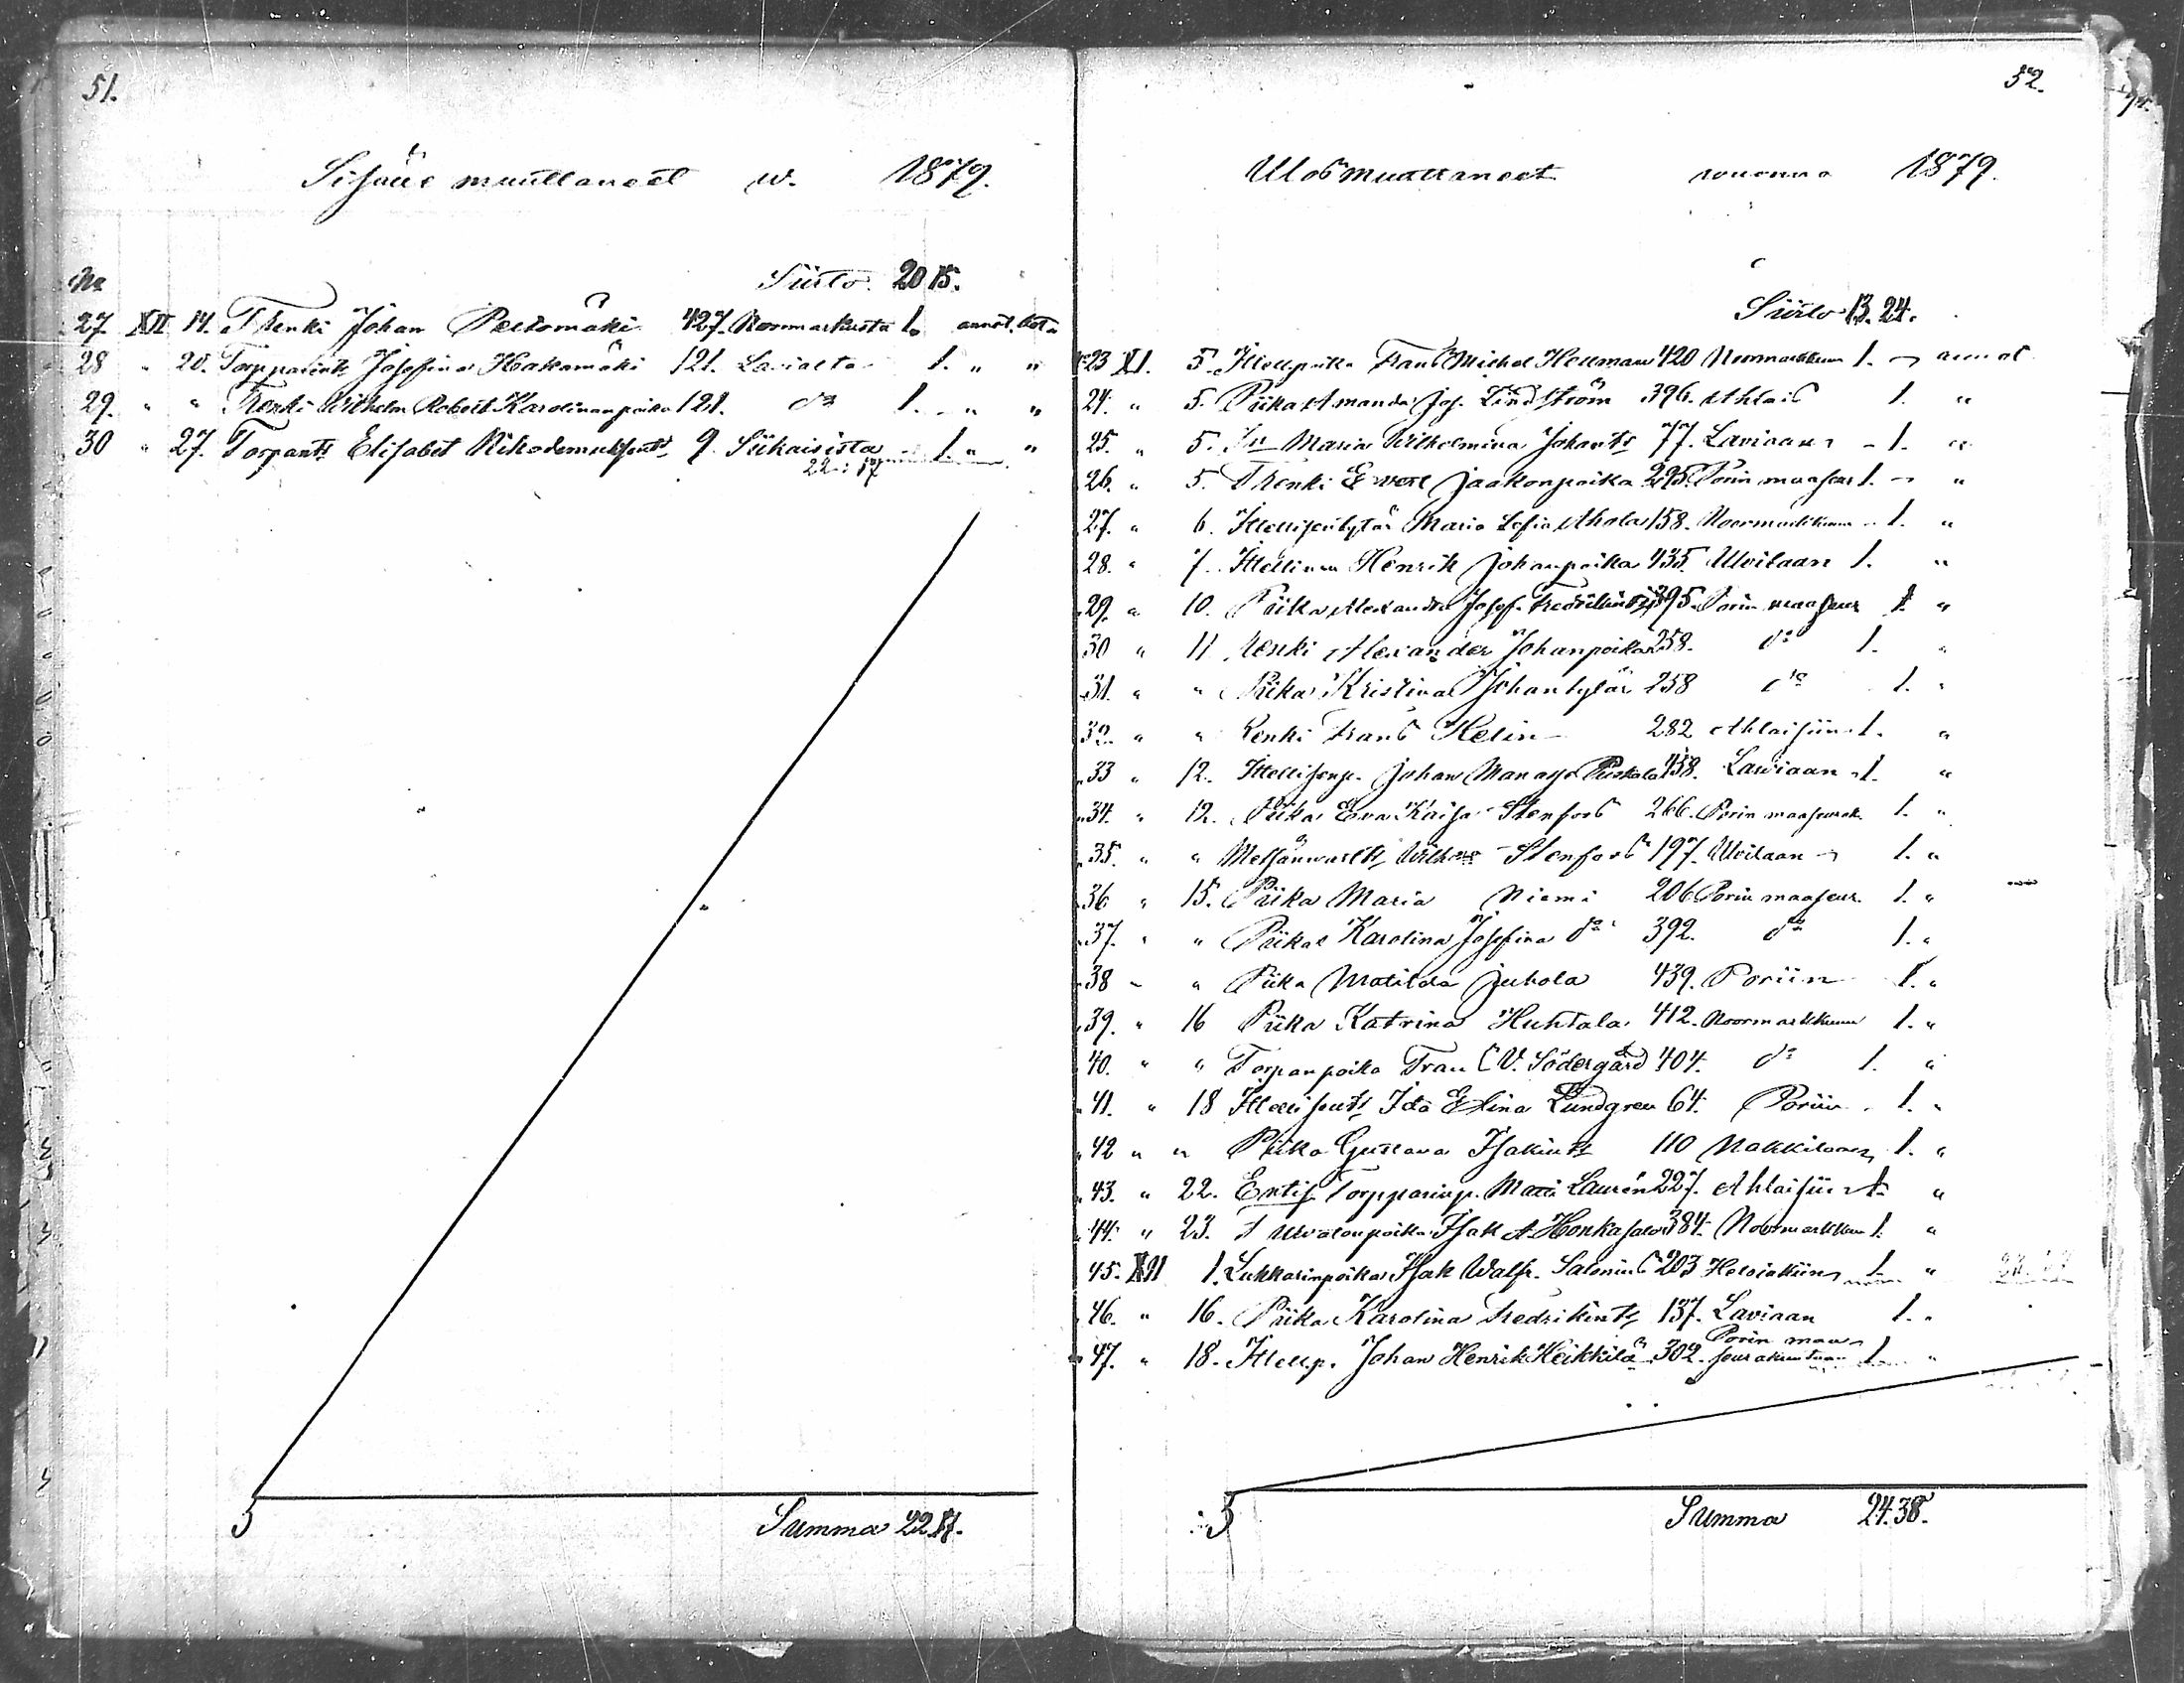 51.
Sisään muuttaneet w. 1879.
No
Siirto 20 15.
27 XII 14. Trenki Johan Peltomäki 427. Norrmarkusta 1. annot. bot.
28 " 20. Torpparintr Josefina Haakamäki 121. Laviasta 1. " "
29. " " Trenki Wilhelm Robert Karolinanpoika 121. do 1. " "
30 " 27. Torpantr Elisabet Nikodemuksentr 9. Siikaisista 1. " "
22 : 17
Summa 22.17.
52.
Ulosmuuttaneet vuonna 1879.
Siirto 13. 24.
23 XI. 5. Itsellpoika Frans Michel Hellman 420 Noormarkkuun 1. annot
24. " 5. Piika Amanda Jos. Lindström 396. Ahlais 1. "
25. " 5. Maria Wilhelmina Johantr 77. Laviaan 1. "
26. " 5. Trenki Evert Jaakonpoika 295. Porin maaseur 1. "
27. " 6. Itsellisentytär Maria Sofia Ahola 158. Noormarkkuun 1. "
28. " 7. Itsellinen Henrik Johanpoika 435. Ulvilaan 1. "
29. " 10. Piika Alexandra Josef. Fredrikintr 395. Porin maaseur 1. "
30 " 11 Renki Alexander Johanpoika 258. do 1. "
31. " " Piika Kristina Johantytär 258 do 1. "
32. " " Renki Frans Helin 282 Ahlaisiin 1. "
33 " 12. Itsellisenp. Johan Manasse 438. Laviaan 1. "
34. " 12. Piika Eva Kaisa Stenfors 266. Porin maaseurak. 1. "
35. " " Metsänvartt Wilhelm Stenfors 197. Ulvilaan 1. "
36 " 15. Piika Maria Niemi 206 Porin maaseur. 1. "
37. " " Piika Karolina Josefina do 392. do 1. "
38 " " Piika Matilda Juhola 439. Poriin 1. "
39. " 16 Piika Katrina Huhtala 412. Noormarkkuun 1. "
40. " " Torpanpoika Frans V. Södergård 404. do 1. "
41. " 18 Itsellisentr Ida Elina Lundgren 64. Poriin 1. "
42 " " Piika Gustava Isakintr 110 Nakkilaan 1. "
43. " 22. Entis. Torpparinp. Matti Laurén 227. Ahlaisiin 1. "
44. " 23. Isak A. Honkasalo 384. Noormarkkuun 1. "
45. XII 1. Lukkarinpoika Isak Walfr. Salonius 203 Helsinkiin 1. "
46. " 16. Piika Karolina Fredrikintr 137. Laviaan 1. "
47. " 18. Itsellp. Johan Henrik Heikkilä 302. Porin maaseurakuntaan 1. "
Summa 24.38.